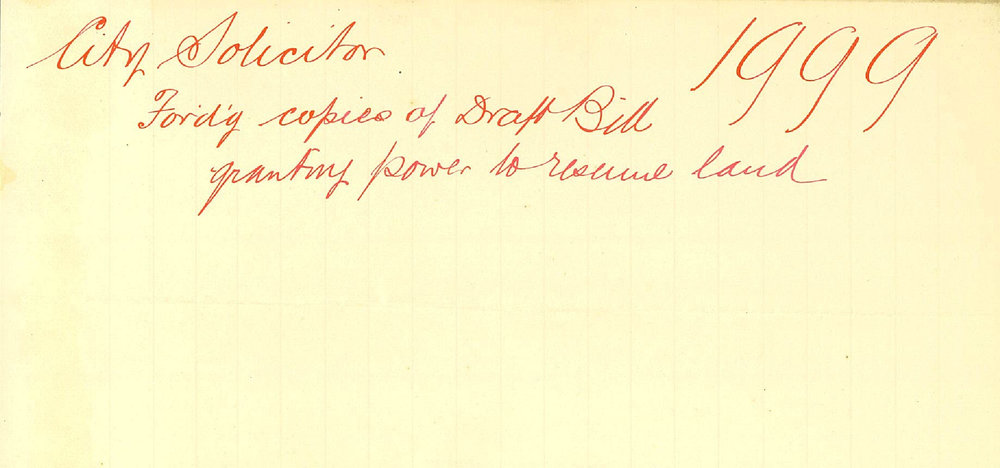 City Solicitor 1999
Ford'g copies of Draft Bill
granting power to resume land